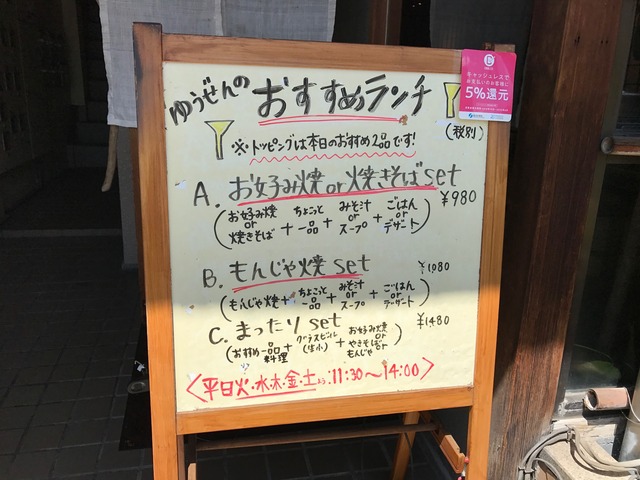 ゆうぜんの
おすすめランチ
(税別)
※トッピングは本日のおすすめ2品です!
A. お好み焼or焼きそばset ¥980
(お好み焼 or 焼きそば + ちょこっと一品 + みそ汁 or スープ + ごはん or デザート)
B. もんじゃ焼 set ¥1080
(もんじゃ焼 + ちょこっと一品 + みそ汁 or スープ + ごはん or デザート)
C. まったりset ¥1480
(おすすめ一品料理 + グラスビール(生小) + お好み焼 or やきそば or もんじゃ)
<平日火・水・木・金・土 より 11:30〜14:00>
キャッシュレスで
お支払いのお客様に
5%還元